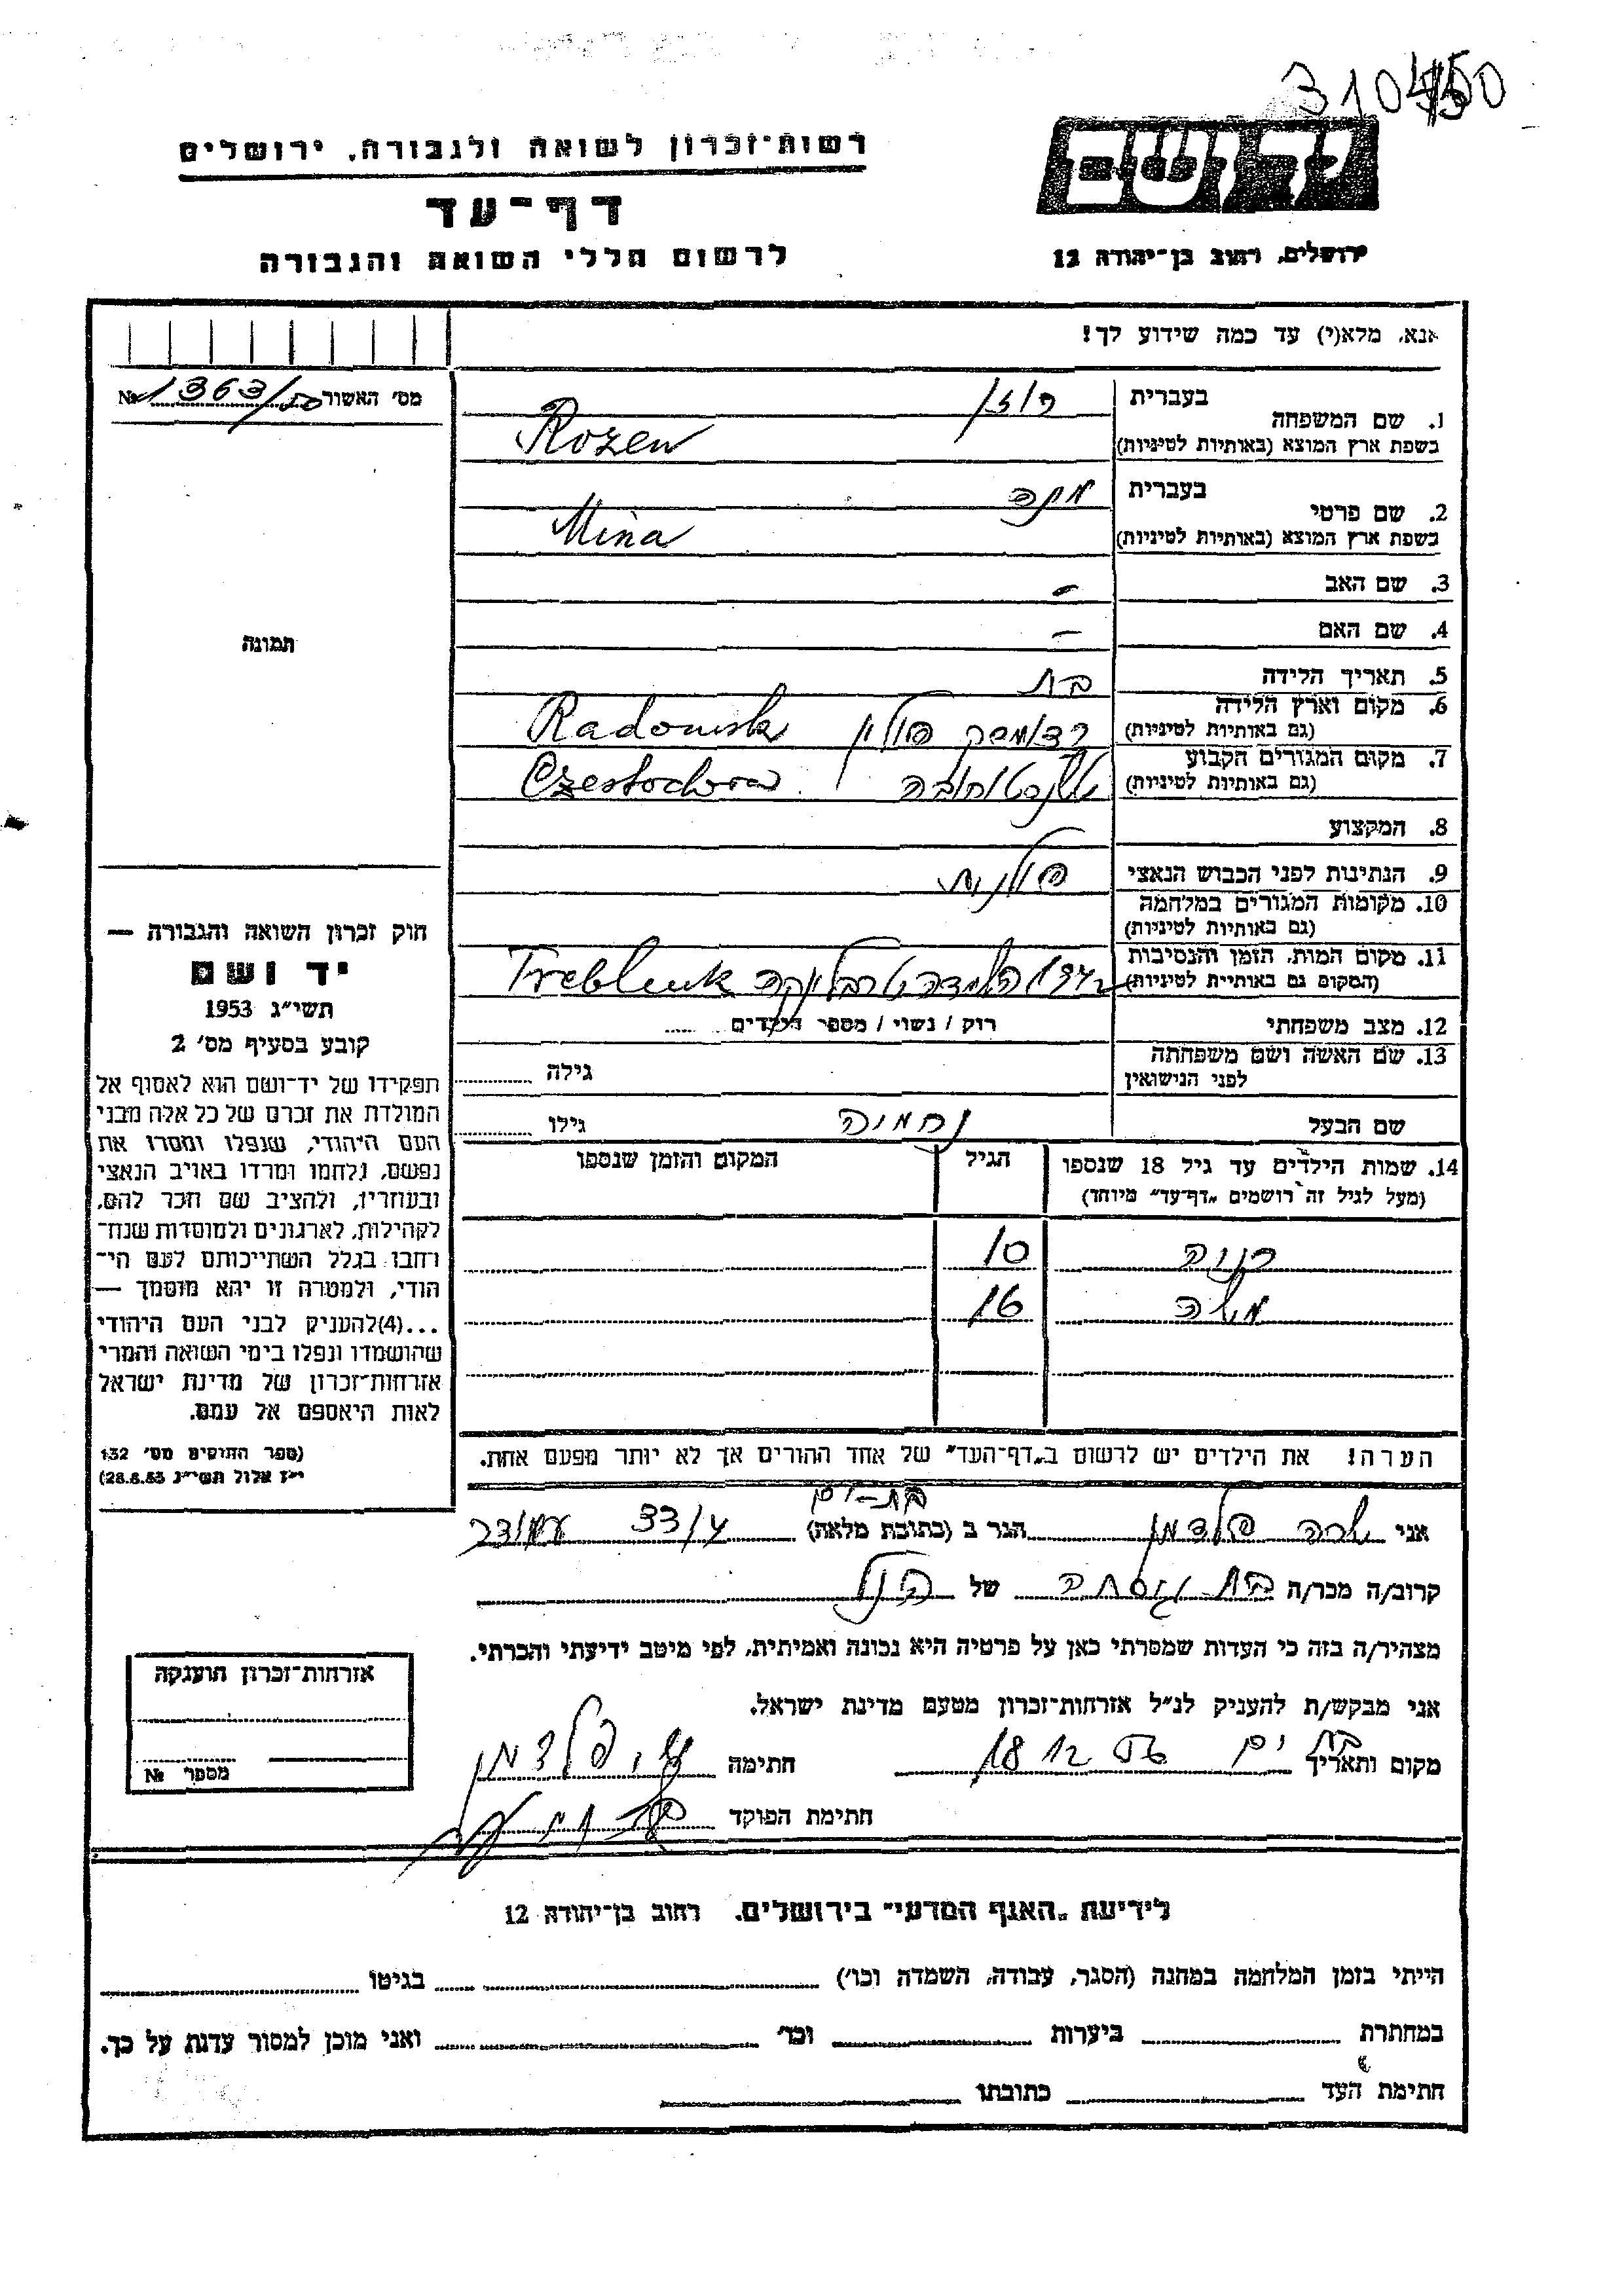 310450
רשות־זכרון לשואה ולגבורה, ירושלים
דף־עד
לרשום חללי השואה והגבורה
יד ושם
ירושלים, רחוב בן־יהודה 12
אנא, מלא(י) עד כמה שידוע לך!
מס׳ האשור №
1. שם המשפחה
בעברית רוזן
בשפת ארץ המוצא (באותיות לטיניות) Rozen
2. שם פרטי
בעברית מינה
בשפת ארץ המוצא (באותיות לטיניות) Mina
3. שם האב –
4. שם האם –
5. תאריך הלידה בת
6. מקום וארץ הלידה
(גם באותיות לטיניות) רדומסק פולין Radomsk
7. מקום המגורים הקבוע
(גם באותיות לטיניות) Czestochowa
8. המקצוע
9. הנתינות לפני הכבוש הנאצי פולנית
10. מקומות המגורים במלחמה
(גם באותיות לטיניות)
11. מקום המות, הזמן והנסיבות
(המקום גם באותיית לטיניות) טרבלינקה Treblenk
12. מצב משפחתי רוק / נשוי / מספר הילדים
13. שם האשה ושם משפחתה
לפני הנישואין גילה
שם הבעל נחמיה גילו
14. שמות הילדים עד גיל 18 שנספו
(מעל לגיל זה רושמים „דף־עד״ מיוחד)
הגיל
המקום והזמן שנספו
10
16
הערה! את הילדים יש לרשום ב„דף־העד״ של אחד ההורים אך לא יותר מפעם אחת.
תמונה
חוק זכרון השואה והגבורה —
יד ושם
תשי״ג 1953
קובע בסעיף מס׳ 2
תפקידו של יד־ושם הוא לאסוף אל
המולדת את זכרם של כל אלה מבני
העם היהודי, שנפלו ומסרו את
נפשם, נלחמו ומרדו באויב הנאצי
ובעוזריו, ולהציב שם וזכר להם,
לקהילות, לארגונים ולמוסדות שנח־
רבו בגלל השתייכותם לעם הי־
הודי, ולמטרה זו יהא מוסמך —
...(4)להעניק לבני העם היהודי
שהושמדו ונפלו בימי השואה והמרי
אזרחות־זכרון של מדינת ישראל
לאות היאספם אל עמם.
(ספר החוקים מס׳ 132
י״ז אלול תשי״ג 28.8.53)
בת-ים
אני שרה פלדמן הגר ב (כתובת מלאה) 33/4 עמידר
קרוב/ה מכר/ה בת של הנ״ל
מצהיר/ה בזה כי העדות שמסרתי כאן על פרטיה היא נכונה ואמיתית, לפי מיטב ידיעתי והכרתי.
אני מבקש/ת להעניק לנ״ל אזרחות־זכרון מטעם מדינת ישראל.
מקום ותאריך בת ים 18 12 56 חתימה ש. פלדמן
חתימת הפוקד
אזרחות־זכרון הוענקה
מספר №
לידיעת „האגף המדעי״ בירושלים, רחוב בן־יהודה 12
הייתי בזמן המלחמה במחנה (הסגר, עבודה, השמדה וכו׳) בגיטו
במחתרת ביערות וכו׳ ואני מוכן למסור עדות על כך.
חתימת העד כתובתו